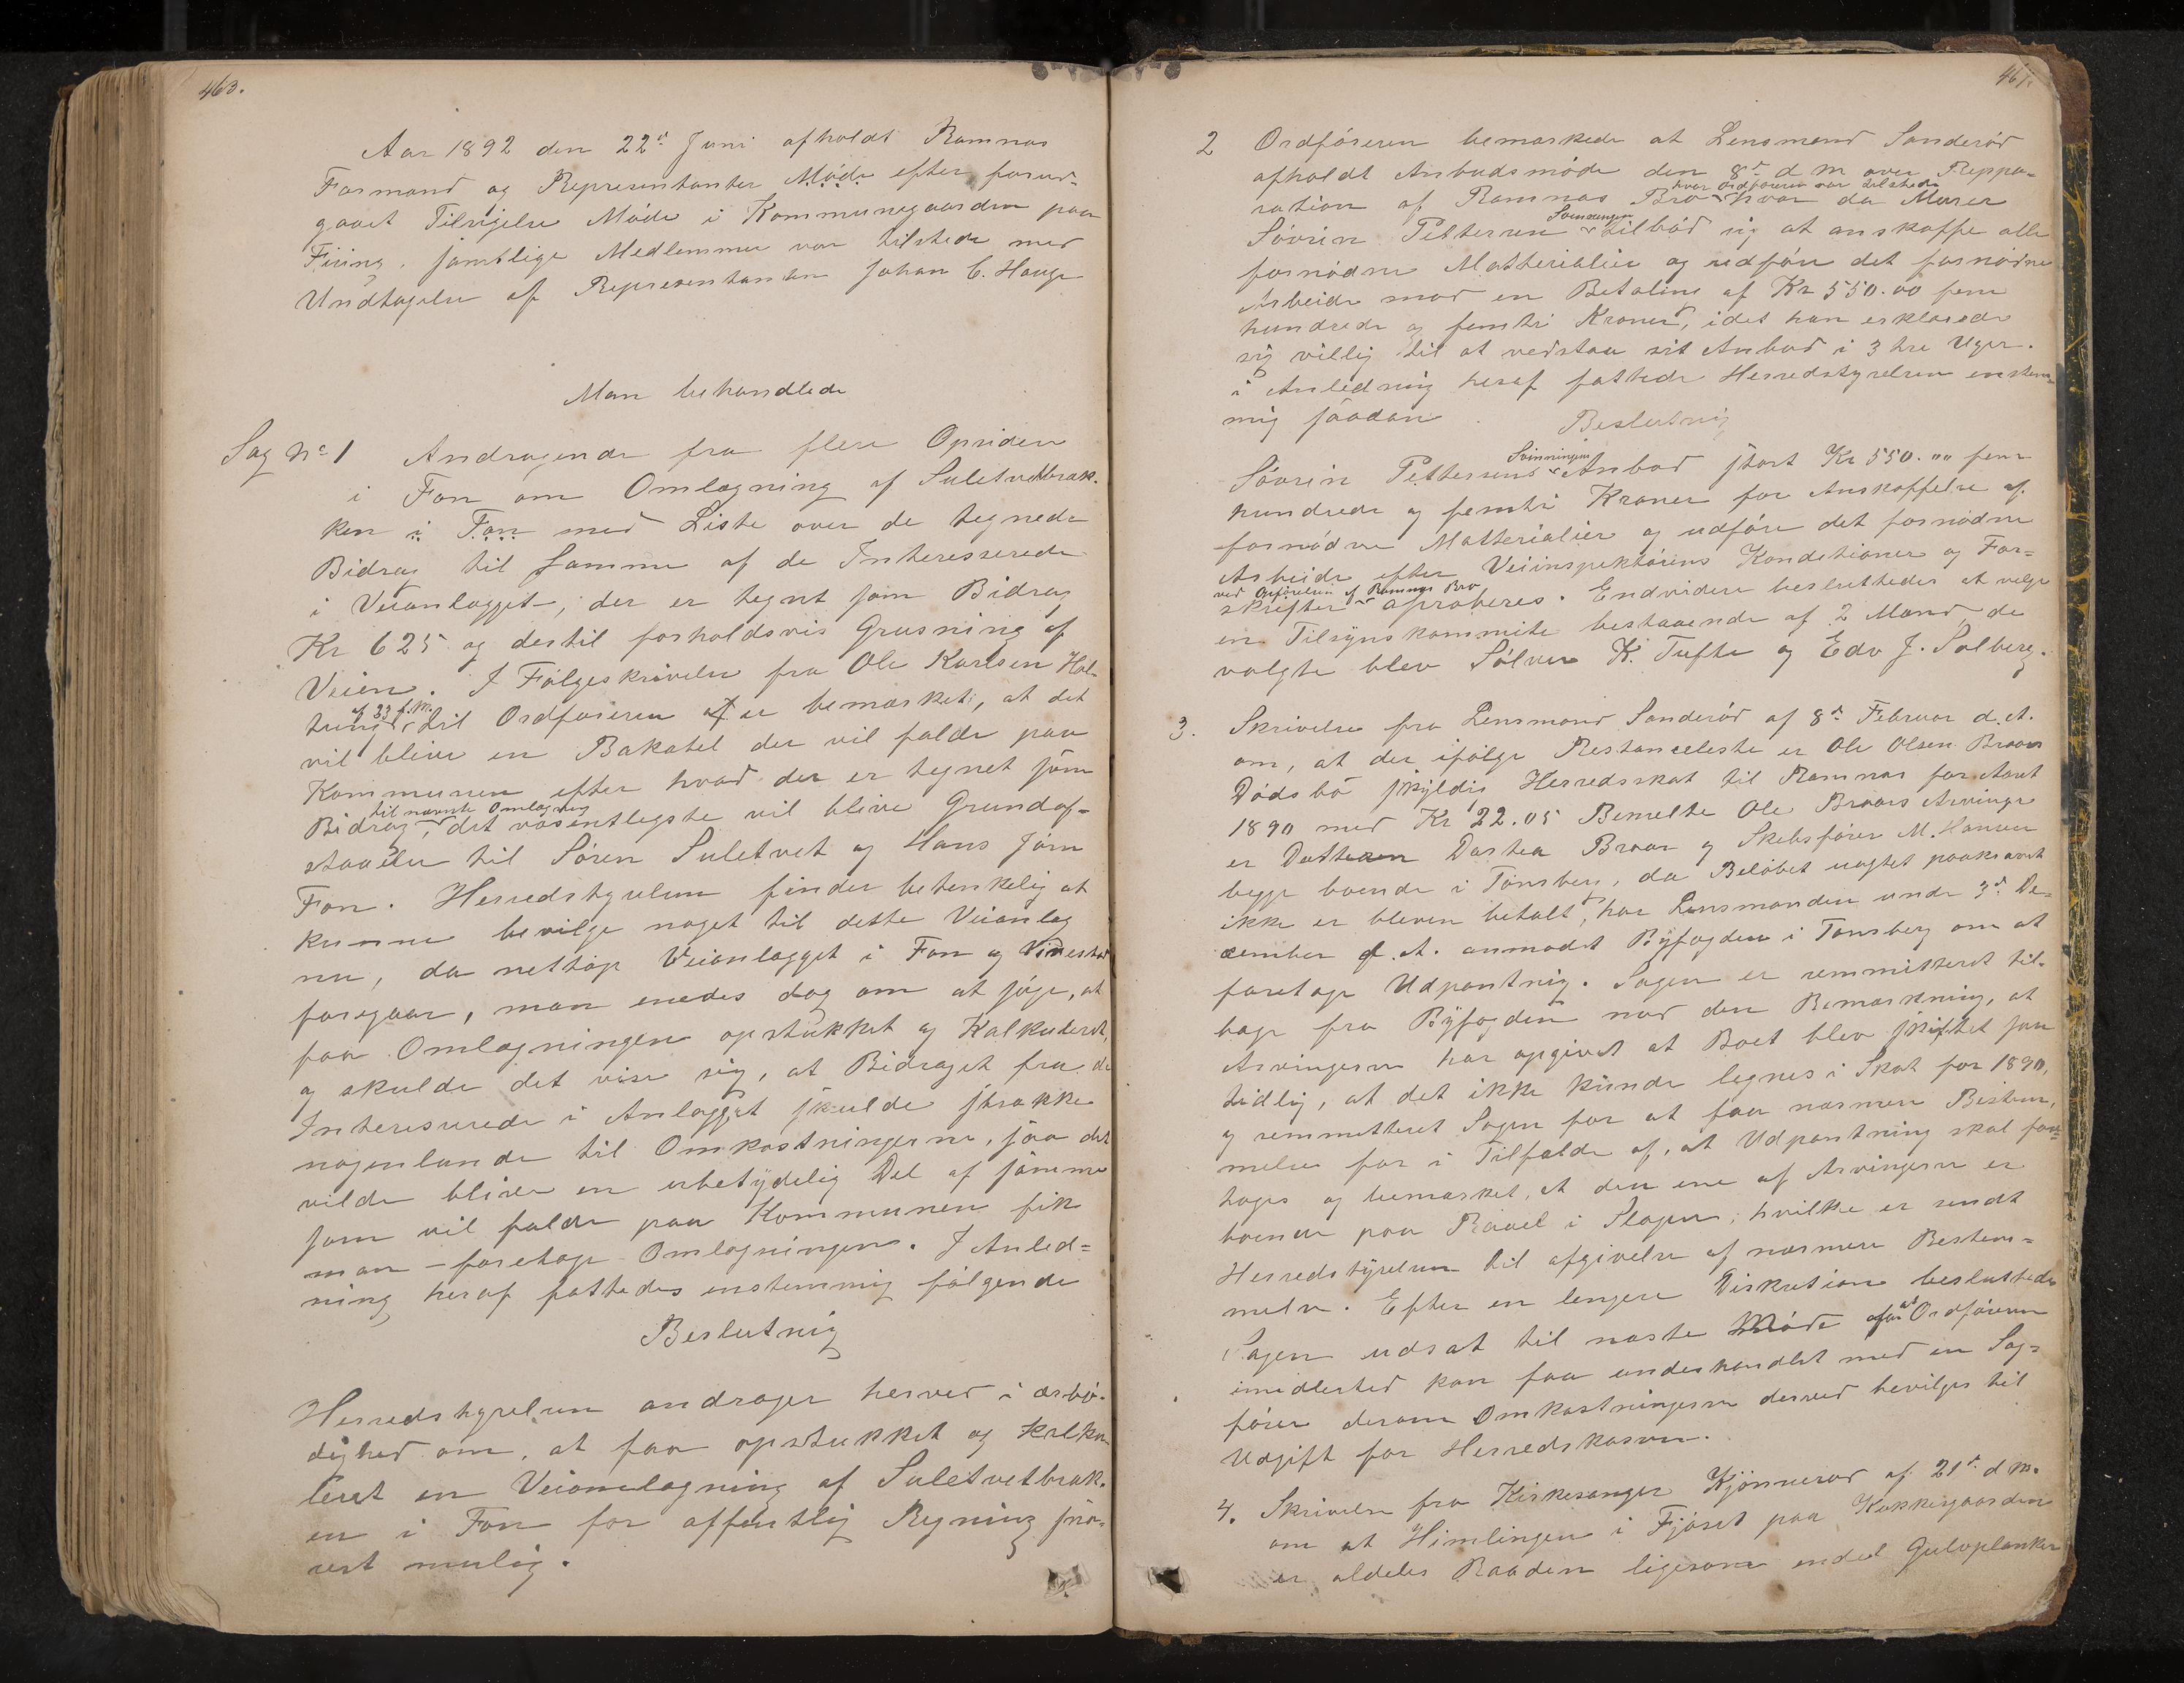 463.
Aar 1892 den 22de Juni afholdt Ramnæs
Formand og Repræsentanter Møde efter forud-
gaaet Tilsigelse Møde i Kommunegaarden paa
Firing. samtlige Medlemmer var tilstede med
Undtagelse af Repræsentanten Johan C. Hauge
Man behandlede
Sag No 1 Andragende fra flere Opsidere
i Fon om Omlægning af Suletvedtbræk-
ken i Fon med Liste over de tegnede
Bidrag til Samme af de Interesserede
i Veianlægget, der er tegnt som Bidrag
Kr 625 og dertil forholdsvis Grusning af
Veien. I Følgeskrivelse fra Ole Karlsen Hol-
tung af 23 f.M. til Ordføreren er bemærket, at det
vil blive en Bakatel der vil falde paa
Kommunen efter hvad der er tegnet som
Bidrag til nævnte Omlægning, det væsentligste vil blive Grundaf-
staaelse til Søren Suletvet og Hans Jørn
Fon. Herredstyrelsen finder betenkelig at
kunne bevilge noget til dette Veianlæg
nu, da nettop Veianlægget i Fon og Vivestad
foregaar, man enedes dog om at søge, at
faa Omlægningen opstukket og Kalkuleret,
og skulde det vise sig, at Bidraget fra de
Interesserede i Anlægget skulde strække
nogenlunde til Omkostningerne, saa det
vilde blive en ubetydelig Del af samme
som vil falde paa Kommunen fik
man foretage Omlægningen. I Anled-
ning heraf fattedes enstemmig følgende
Beslutnig
Herredstyrelsen andrager herved i ærbø-
dighed om, at faa opstukket og kalku-
leret en Veiomlægning af Suletvetbræk-
en i Fon for offentlig Regning sna-
rest mulig.
464.
2 Ordføreren bemærkede at Lensmand Sanderød
afholdt Anbudsmøde den 8de d m over Reppa-
ration af Ramnæs Bro hvor Ordføreren var tilstede hvor da Murer
Søvrin Pettersen Svinningen tilbød sig at anskaffe alle
fornødne Matterialier og udføre det fornødne
Arbeide mod en Betaling af Kr 550.00 fem
hundrede og femti Kroner, idet han erklærede
sig villig til at vedstaa sit Anbud i 3 tre Uger.
i Anledning heraf fattede Herredstyrelsen enstem-
mig saadan Beslutnig
Søvrin Pettersens Svinningen Anbud stort Kr 550.00 fem
hundrede og femti Kroner for Anskaffelse af
fornødne Matterialier og udføre det fornødne
Arbeide efter Veiinspektørens Konditioner og For-
skrifter ved Opførelsen af Ramnæs Bro aproberes. Endvidere besluttedes at velge
en Tilsynskommite bestaaende af 2 Mand de
valgte blev Sølver K. Tufte og Edv J. Solberg.
3. Skrivelse fra Lensmand Sanderød af 8de Februar d.A.
om, at der ifølge Restanceliste er Ole Olsen Braars
Dødsbo skyldig Herredsskat til Ramnæs for Aaret
1890 med Kr 22.05 Bemelte Ole Braars Arvinger
er Datteren Dortea Braar og Skibsfører M. Hansen
begge boende i Tønsberg, da Beløbet uagtet paakrævet
ikke er bleven betalt, har Lensmanden under 3de De-
cember f.A. anmodet Byfogden i Tønsberg om at
foretage Udpantnig. Sagen er remmitteret til-
bage fra Byfogden med den Bemærkning, at
Arvingerne har opgivet at Boet blev skiftet saa
tidlig, at det ikke kunde legnes i Skat for 1890,
og remmitteret Sagen for at faa nærmere Bestem-
melse for i Tilfælde af, at Udpantning skal fore-
tages og bemærket, at den ene af Arvingerne er
boende paa Raael i Slagen, hvilke er sendt
Herredstyrelsen til afgivelse af nærmere Bestem-
melse. Efter en lengere Diskution besluttedes
Sagen udsat til næste Møde at Ordføreren
imidlertid kan faa underhandlet med en Sag-
fører derom Omkostningerne derved bevilges til
Udgift for Herredskassen.
4. Skrivelse fra Kirkesanger Kjønnerød af 21de d m.
om at Himlingen i Fjøset paa Klokkergaarden
er aldeles Raaden ligesom endel Gulvplanker